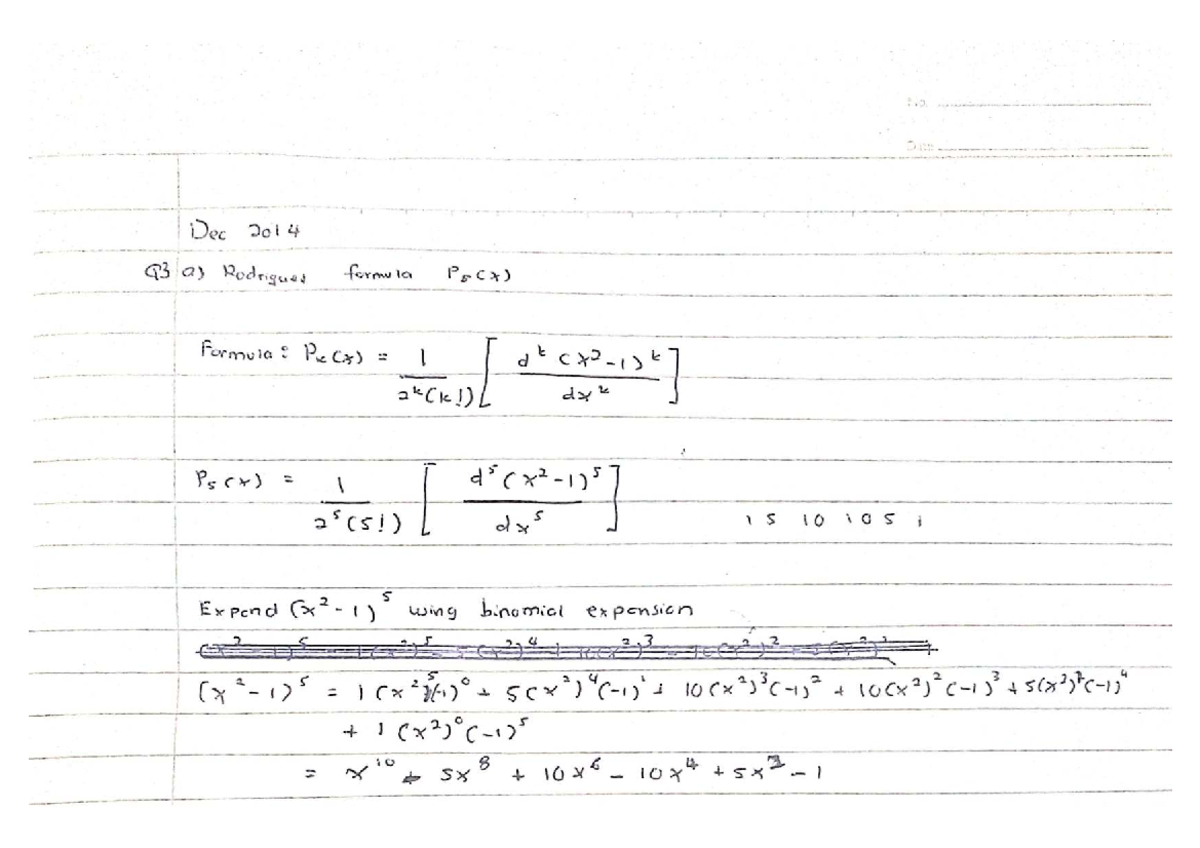 No.
Date
Dec 2014
Q3 a) Rodrigues formula P₅(x)
Formula: Pₖ(x) = 1/(2ᵏ(k!)) [dᵏ(x²-1)ᵏ/dxᵏ]
P₅(x) = 1/(2⁵(5!)) [d⁵(x²-1)⁵/dx⁵]
1 5 10 10 5 1
Expand (x²-1)⁵ using binomial expansion
(x²-1)⁵ = 1(x²)⁵(-1)⁰ + 5(x²)⁴(-1)¹ + 10(x²)³(-1)² + 10(x²)²(-1)³ + 5(x²)¹(-1)⁴
+ 1(x²)⁰(-1)⁵
= x¹⁰ - 5x⁸ + 10x⁶ - 10x⁴ + 5x² - 1